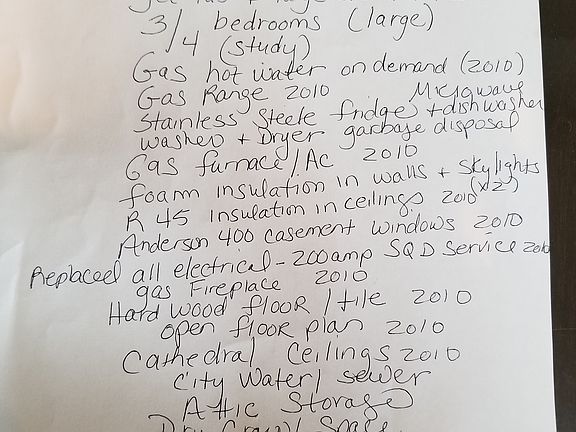 3/4 bedrooms (large)
3/4 (study)
Gas hot water on demand (2010)
Gas Range 2010 Microwave
Stainless Steele fridge + dishwasher
washer + Dryer garbage disposal
Gas furnace/Ac 2010
foam insulation in walls + Skylights
(x2)
R 45 insulation in ceilings 2010
Anderson 400 casement windows 2010
Replaced all electrical - 200amp SQD Service 2010
gas Fireplace 2010
Hard wood floor / tile 2010
open floor plan 2010
Cathedral Ceilings 2010
City Water/ sewer
Attic Storage
Dry Crawl Space